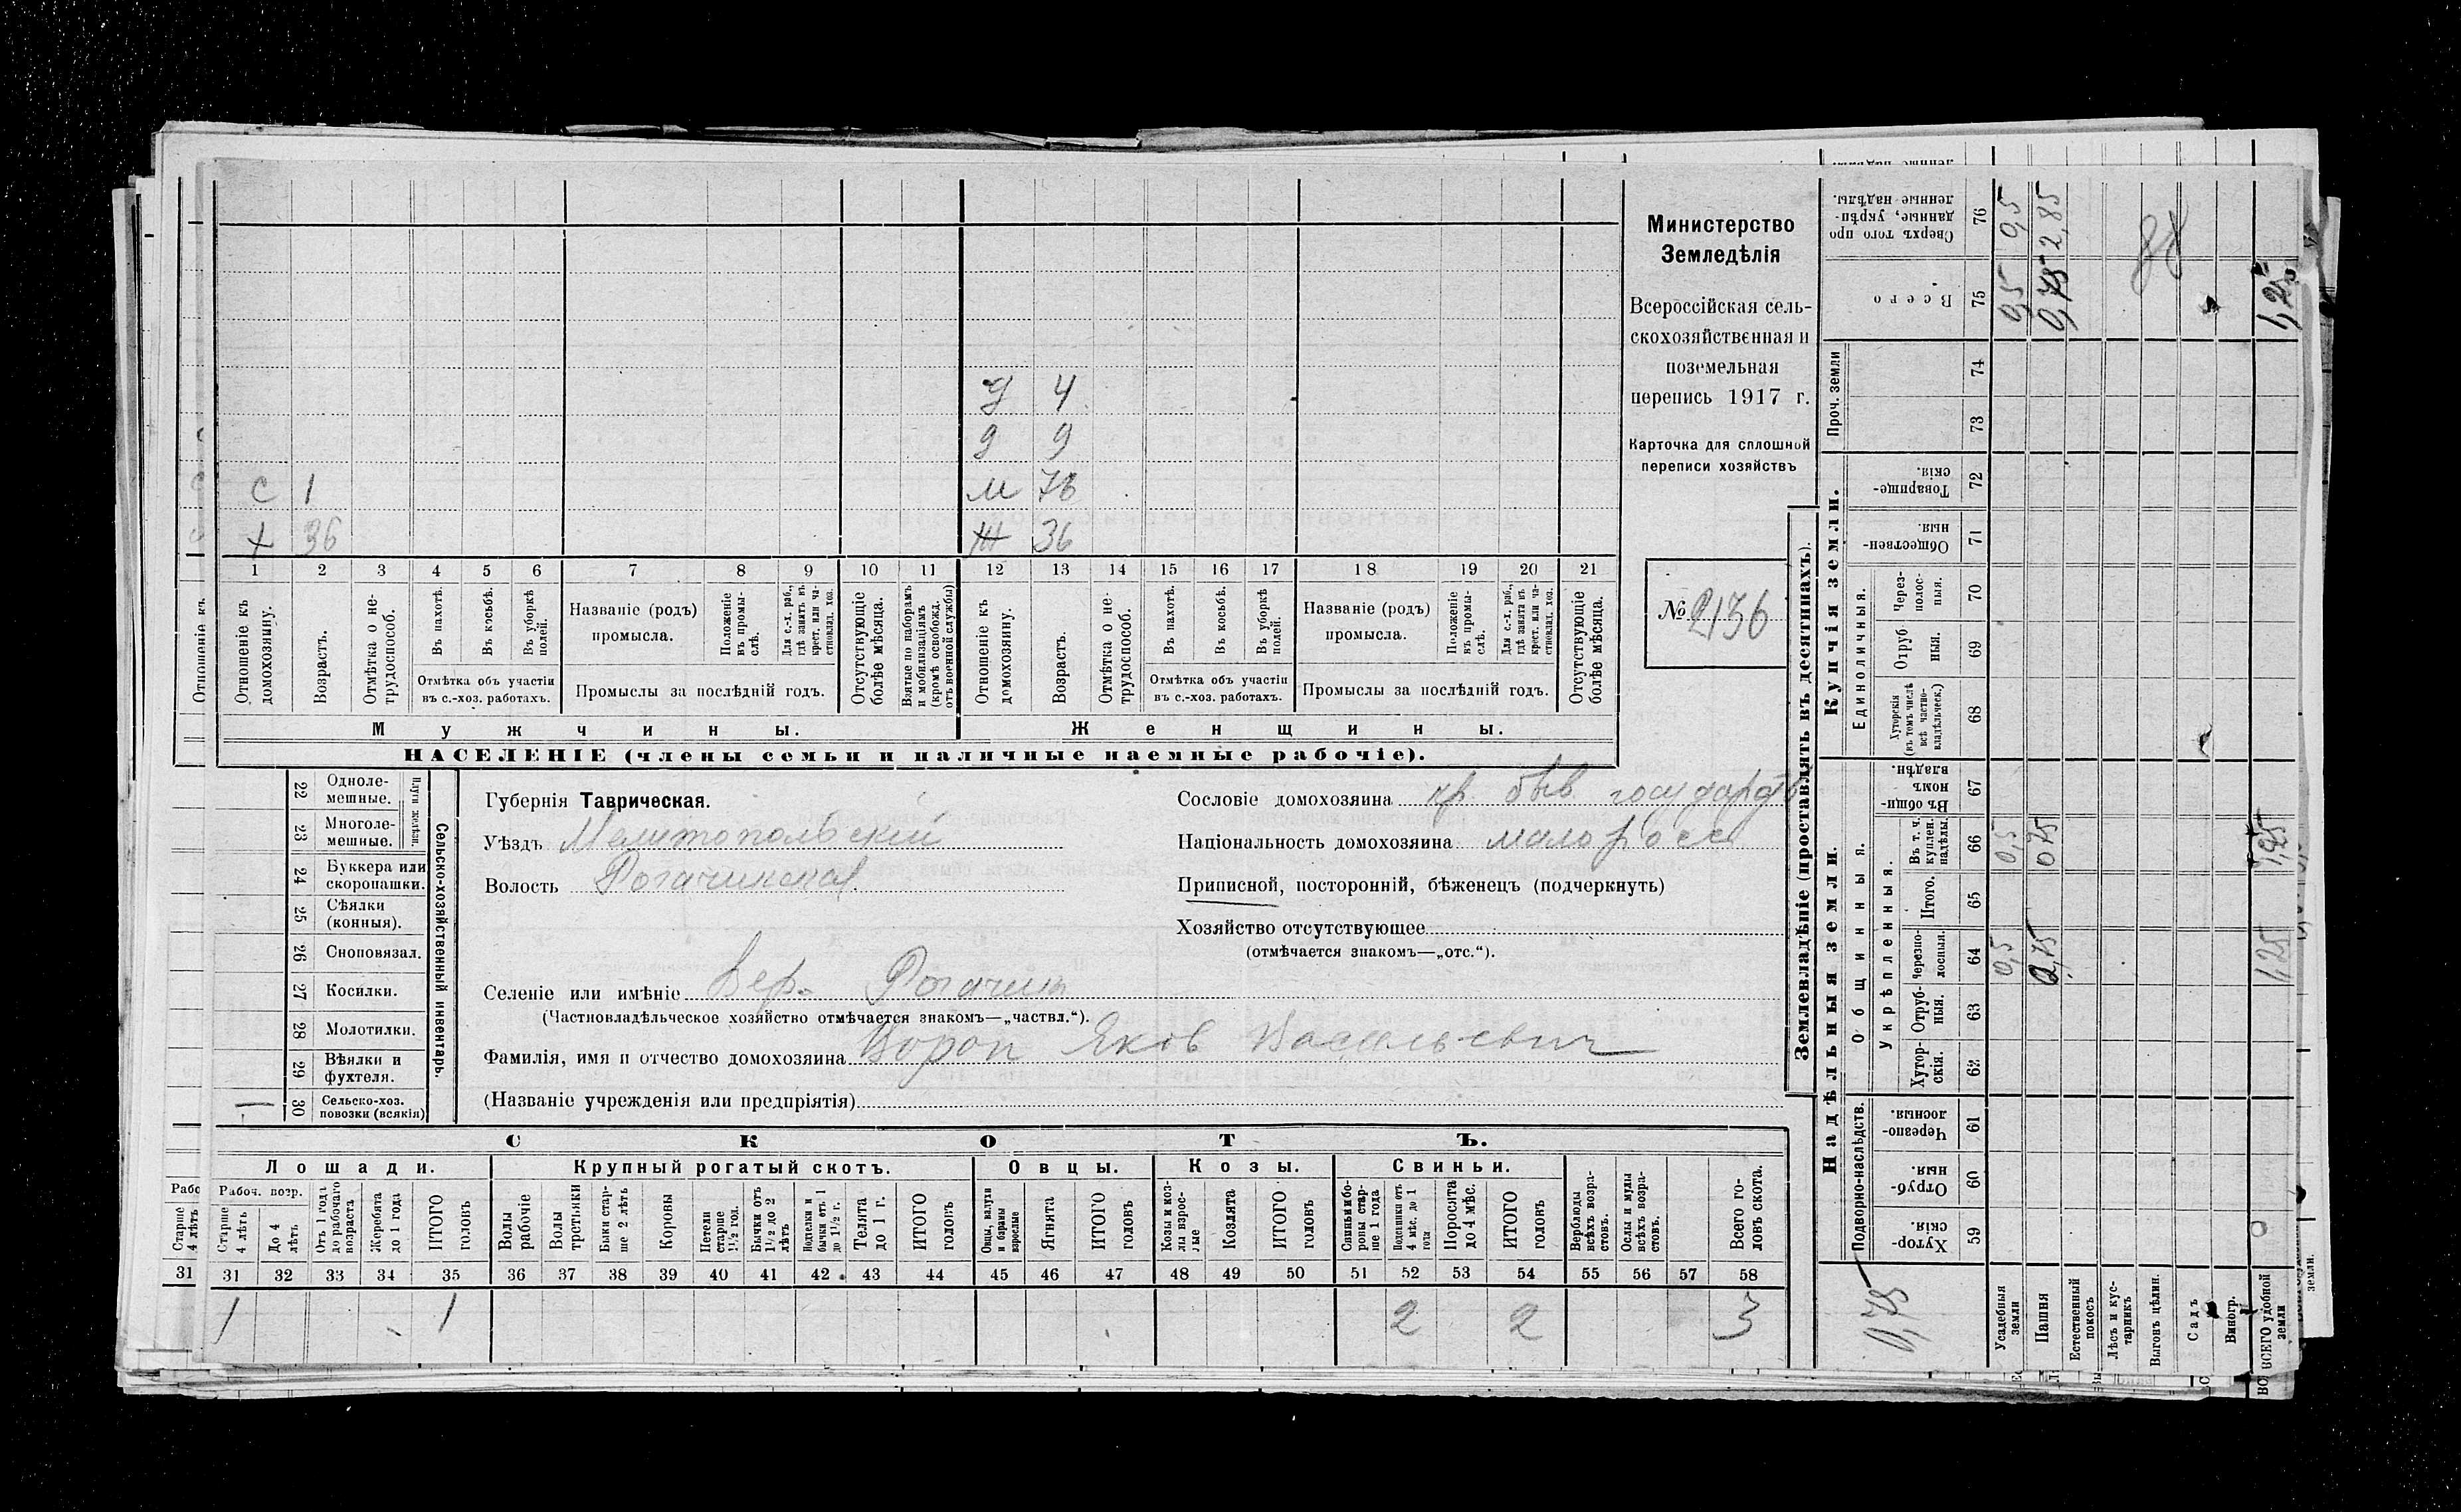 Министерство
Земледѣлія
Всероссійская сель-
скохозяйственная и
поземельная
перепись 1917 г.
Карточка для сплошной
переписи хозяйствъ
№ 2136
У 4
д 9
с 1 м 76
х 36 ж 36
1 2 3 4 5 6 7 8 9 10 11 12 13 14 15 16 17 18 19 20 21
Отношеніе къ домохозяину.
Возрастъ.
Отмѣтка о не-трудоспособ.
Въ пахотѣ.
Въ косьбѣ.
Въ уборкѣ полей.
Отмѣтка объ участіи
въ с.-хоз. работахъ.
Названіе (родъ)
промысла.
Положеніе въ промы-слѣ.
Для с.-х. раб., гдѣ занятъ въ крест. или ча-стновлад. хоз.
Промыслы за послѣдній годъ.
Отсутствующіе болѣе мѣсяца.
Взятые по наборамъ и мобилизаціямъ (кромѣ освобожд. отъ военной службы)
Отношеніе къ домохозяину.
Возрастъ.
Отмѣтка о не-трудоспособ.
Въ пахотѣ.
Въ косьбѣ.
Въ уборкѣ полей.
Отмѣтка объ участіи
въ с.-хоз. работахъ.
Названіе (родъ)
промысла.
Положеніе въ промы-слѣ.
Для с.-х. раб., гдѣ занята въ крест. или ча-стновлад. хоз.
Промыслы за послѣдній годъ.
Отсутствующіе болѣе мѣсяца.
Мужчины. Женщины.
НАСЕЛЕНІЕ (члены семьи и наличные наемные рабочіе).
Сельско-хозяйственный инвентарь.
22 Одноле-мешные.
23 Многоле-мешные.
24 Буккера или скоропашки.
25 Сѣялки (конныя).
26 Сноповязал.
27 Косилки.
28 Молотилки.
29 Вѣялки и фухтеля.
30 Сельско-хоз. повозки (всякія) 1
Губернія Таврическая.
Уѣздъ Мелитопольскій
Волость Рогачинская
Сословіе домохозяина кр. быв. государств
Національность домохозяина малоросс
Приписной, посторонній, бѣженецъ (подчеркнуть)
Хозяйство отсутствующее
(отмѣчается знакомъ—„отс.“).
Селеніе или имѣніе Вер. Рогачикъ
(Частновладѣльческое хозяйство отмѣчается знакомъ—„частвл.“).
Фамилія, имя и отчество домохозяина Ворон Яков Васильевич
(Названіе учрежденія или предпріятія)
СКОТЪ.
Лошади. Крупный рогатый скотъ. Овцы. Козы. Свиньи.
Рабоч. возр.
Старше 4 лѣтъ
До 4 лѣтъ
Отъ 1 года до рабочаго возраста
Жеребята до 1 года
ИТОГО головъ
Волы рабочіе
Волы третьяки
Быки стар-ше 2 лѣтъ
Коровы
Нетели старше 1½ год.
Бычки отъ 1½ до 2 лѣтъ
Подтелки и бычки отъ 1 до 1½ г.
Телята до 1 г.
ИТОГО головъ
Овцы, валухи и бараны взрослые
Ягнята
ИТОГО головъ
Козы и коз-лы взрос-лые
Козлята
ИТОГО головъ
Свиньи и бо-ровы стар-ше 1 года
Подсвинки отъ 4 мѣс. до 1 года
Поросята до 4 мѣс.
ИТОГО головъ
Верблюды всѣхъ возра-стовъ.
Ослы и мулы всѣхъ возра-стовъ.
Всего го-ловъ скота.
31 31 32 33 34 35 36 37 38 39 40 41 42 43 44 45 46 47 48 49 50 51 52 53 54 55 56 57 58
1 1 2 2 3
Землевладѣніе (проставлять въ десятинахъ).
Надѣльныя земли. Купчія земли. Проч. земли
Подворно-наслѣдств.
Общинныя.
Укрѣпленныя.
Единоличныя.
Хутор-скія. 59
Отруб-ныя. 60
Черезпо-лосныя. 61
Хутор-скія. 62
Отруб-ныя. 63
Черезпо-лосныя. 64
Итого. 65
Въ т. ч. куплен. надѣлы. 66
Въ общи-номъ владѣн. 67
Хуторскія (въ томъ числѣ всѣ частно-владѣльческ.) 68
Отруб ныя. 69
Через-полос-ныя. 70
Обществен-ныя. 71
Товарище-скія. 72
73
74
Всего 75
Сверхъ того про данные, укрѣп-ленные надѣлы. 76
0,75
Усадебныя земли 0,5 0,5 0,5 0,5
Пашня 0,75 0,75 0,75 2,85
Естественный покосъ
Лѣсъ и кус-тарникъ
Выгонъ цѣлин.
Садъ
Виногр.
ВСЕГО удобной земли 1,25 1,25 1,25